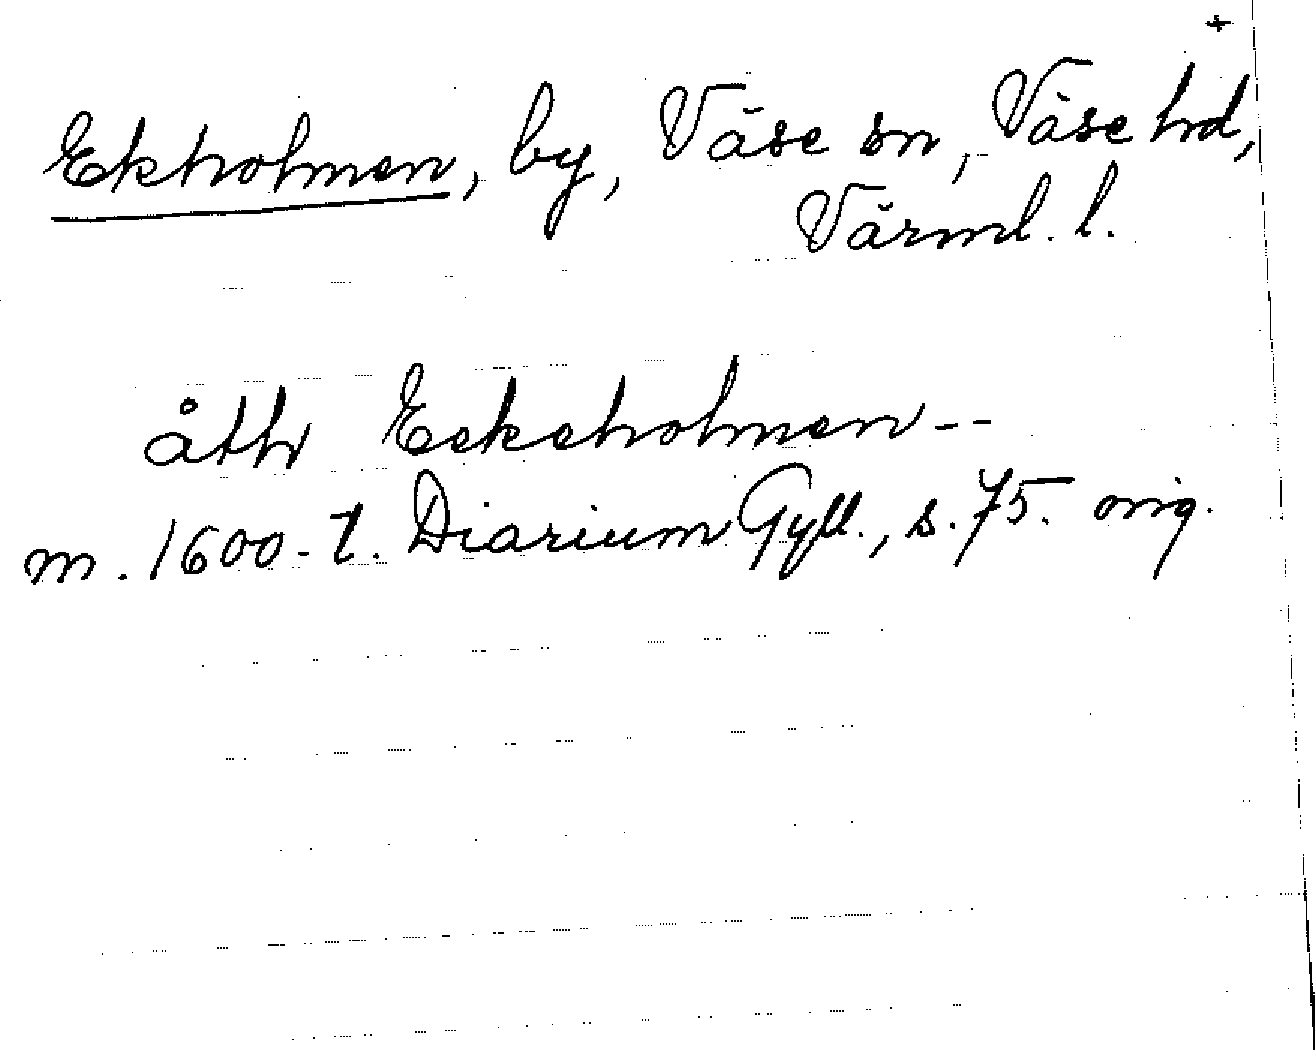 +
Ekholmen, by, Väse sn, Väse hd,
Värml. l.
åth Eekeholmen--
m. 1600-t. Diarium Gyll., s. 75. orig.